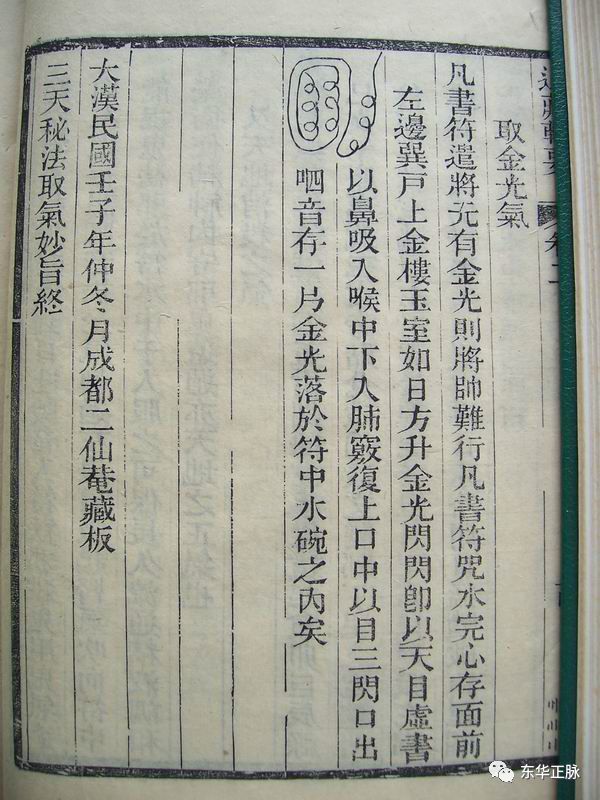 取金光氣
凡書符遣將无有金光則將帥難行凡書符咒水完心存面前
左邊巽戸上金樓玉室如日方升金光閃閃卽以天目虛書
以鼻吸入喉中下入肺竅復上口中以目三閃口出
呬音存一片金光落於符中水碗之內矣
大漢民國壬子年仲冬月成都二仙菴藏板
三天秘法取氣妙旨終
东华正脉